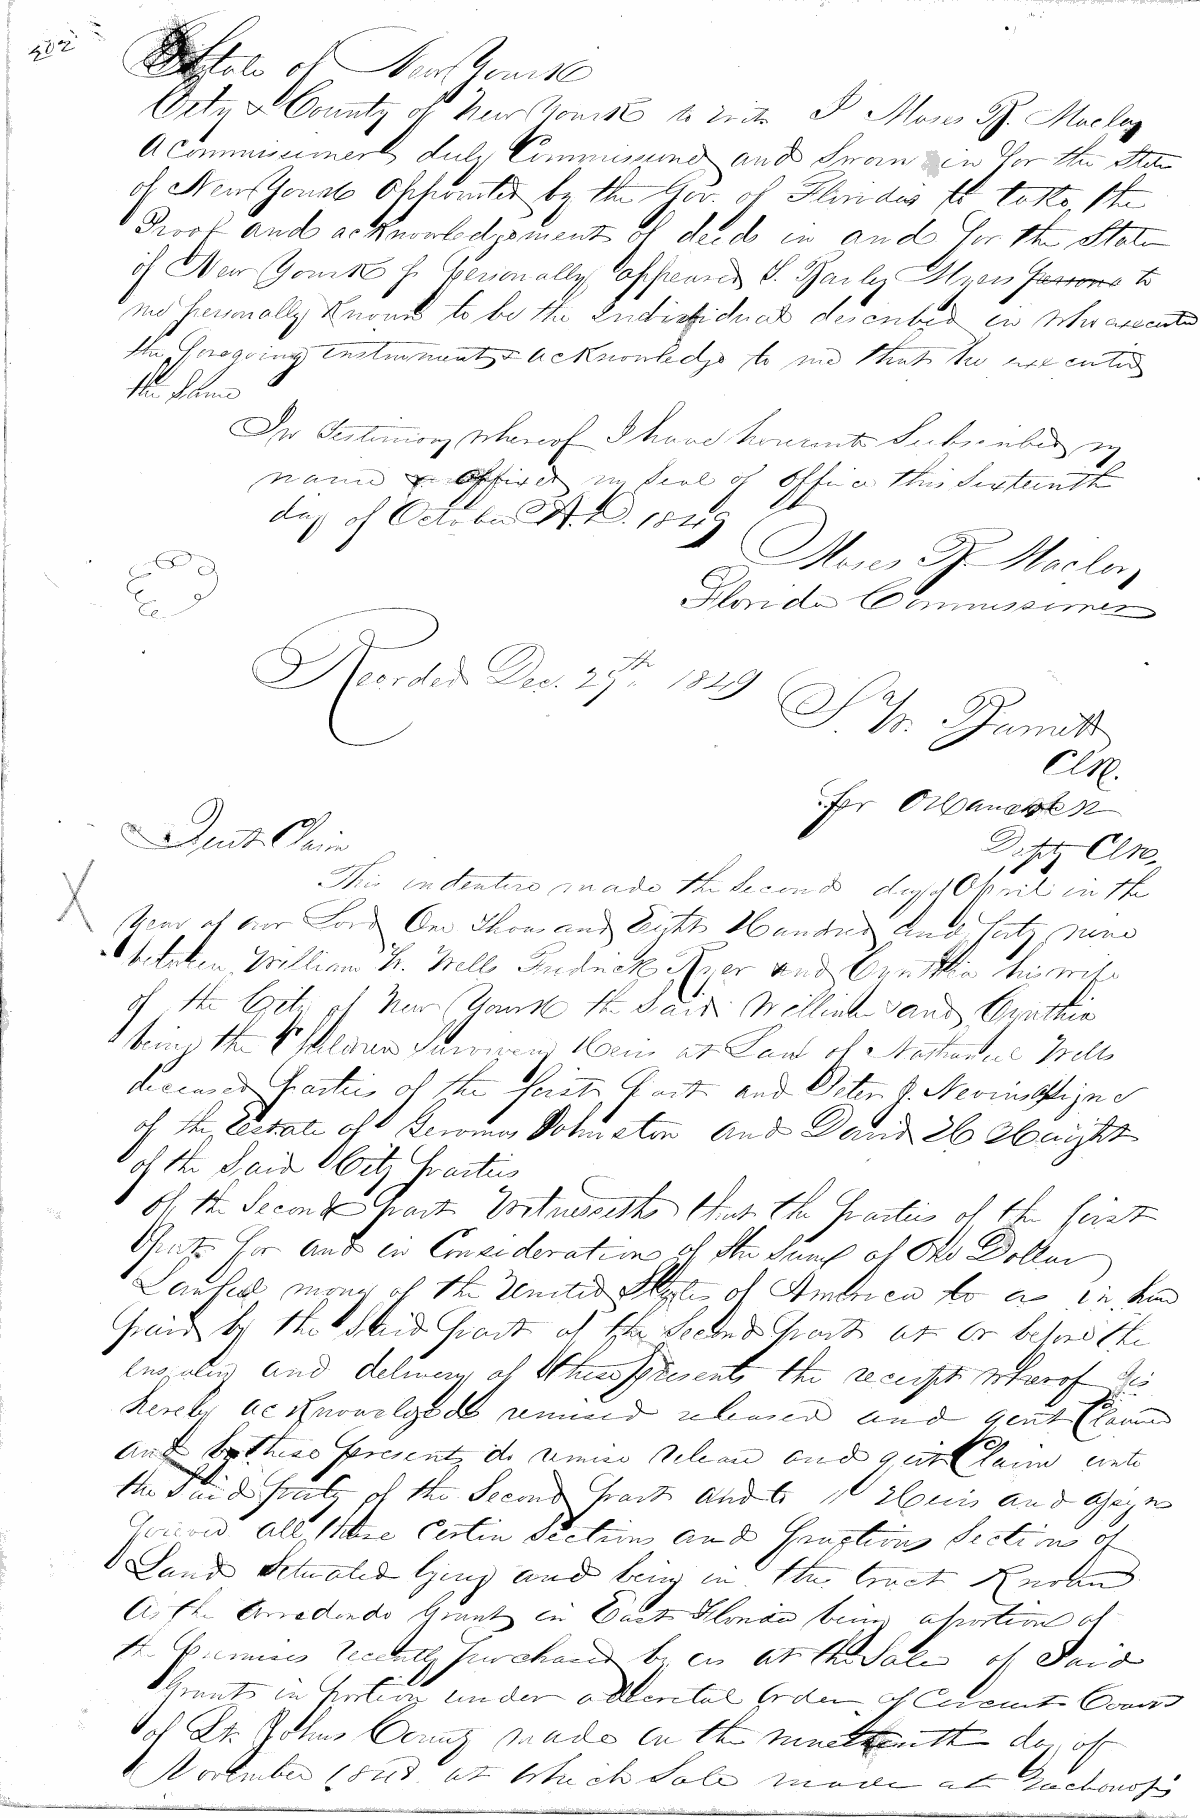 State of New Yourk
City & County of New Yourk to wit I Moses B. Maclay
a Commissioner duly Commissioned and Sworn in for the State
of New Yourk appointed by the Gov. of Florida to take the
Proof and acknowledgement of deeds in and for the State
of New Yourk personally appeared S. Barley Myers to
me personally Known to be the individual described in who executed
the foregoing instrument & acknowledge to me that he executed
the Same
In testimony whereof I have hereunto Subscribed my
name & affixed my Seal of office this Sixteenth
day of October A.D. 1849
Moses B. Maclay
Florida Commissioner
Recorded Dec. 27th 1849
Clk.
Per
Depty Clk.
Quit Claim
This indenture made the Second day of April in the
Year of our Lord One Thousand Eight Hundred and forty nine
between William H. Wells Fredrick Ryer and Cynthia his wife
of the City of New Yourk the Said William and Cynthia
being the Children Surviving Heirs at Law of Nathaniel Wells
deceased parties of the first part and Peter J. Nevins
of the Estate of Geromus Johnston and David H Haight
of the Said City parties
of the Second part Witnesseth that the parties of the first
part for and in Consideration of the Sum of One Dollar
Lawful money of the United States of America to us in hand
paid by the Said part of the Second part at or before the
and delivery of these presents the receipt wherof is
hereby acknowelgede remised released and quit Claimed
and by these presents do remise release and quit Claim unto
the Said party of the Second part and to Heirs and assigns
forever all those certin Sections and fractions Sections of
Land Situated lying and being in the tract Known
as the Arredondo Grant in East Florida being a portion of
the premises recently purchased by us at the Sale of Said
Grants in portion under a decretal order of Circuit Court
of St. Johns County made on the nineteenth day of
November 1848 at Which Sale made at